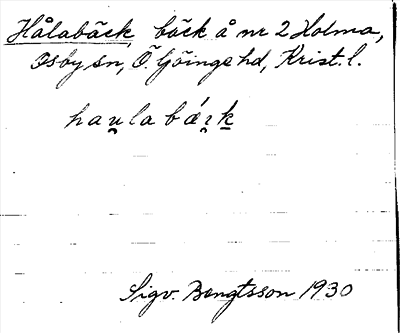 Hålabäck, bäck å nr 2 Holma,
Osby sn, Ö. Göinge hd, Krist. l.
hau̯labǽi̯k
Sigv. Bengtsson 1930